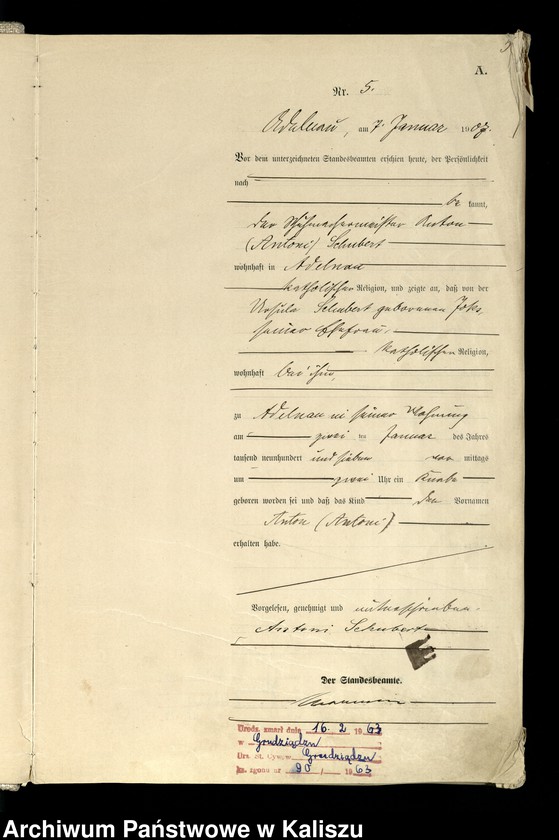 A.
Nr. 5.
Adelnau, am 7. Januar 1907.
Vor dem unterzeichneten Standesbeamten erschien heute, der Persönlichkeit
nach
be kannt,
der Schuhmachermeister Anton
(Antoni) Schubert
wohnhaft in Adelnau
katholischer Religion, und zeigte an, daß von der
Ursula Schubert geborenen
seiner Ehefrau,
katholischen Religion,
wohnhaft bei ihm,
zu Adelnau in seiner Wohnung
am zwei ten Januar des Jahres
tausend neunhundert und sieben vor mittags
um zwei Uhr ein Knabe
geboren worden sei und daß das Kind den Vornamen
Anton (Antoni)
erhalten habe.
Vorgelesen, genehmigt und unterschrieben.
Antoni Schubert
Der Standesbeamte.
Urodz. zmarł dnia 16.2 1963
w Grudziądzu
Urz. St. Cyw. w Grudziądzu
Nr. zgonu nr 90 / 1963
Archiwum Państwowe w Kaliszu